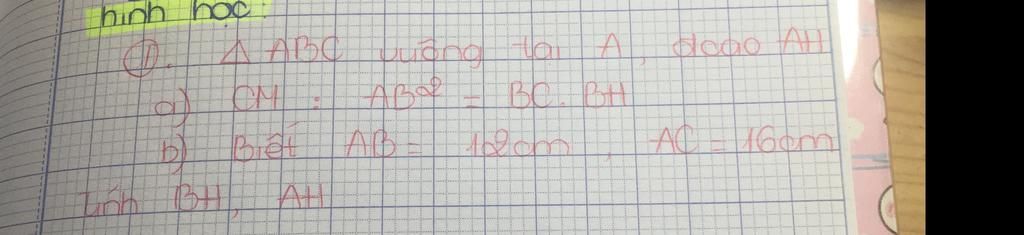 hình học:
①. Δ ABC vuông tại A, đcao AH
a) CM : AB² = BC. BH
b) Biết AB = 12cm, AC = 16cm
Tính BH, AH